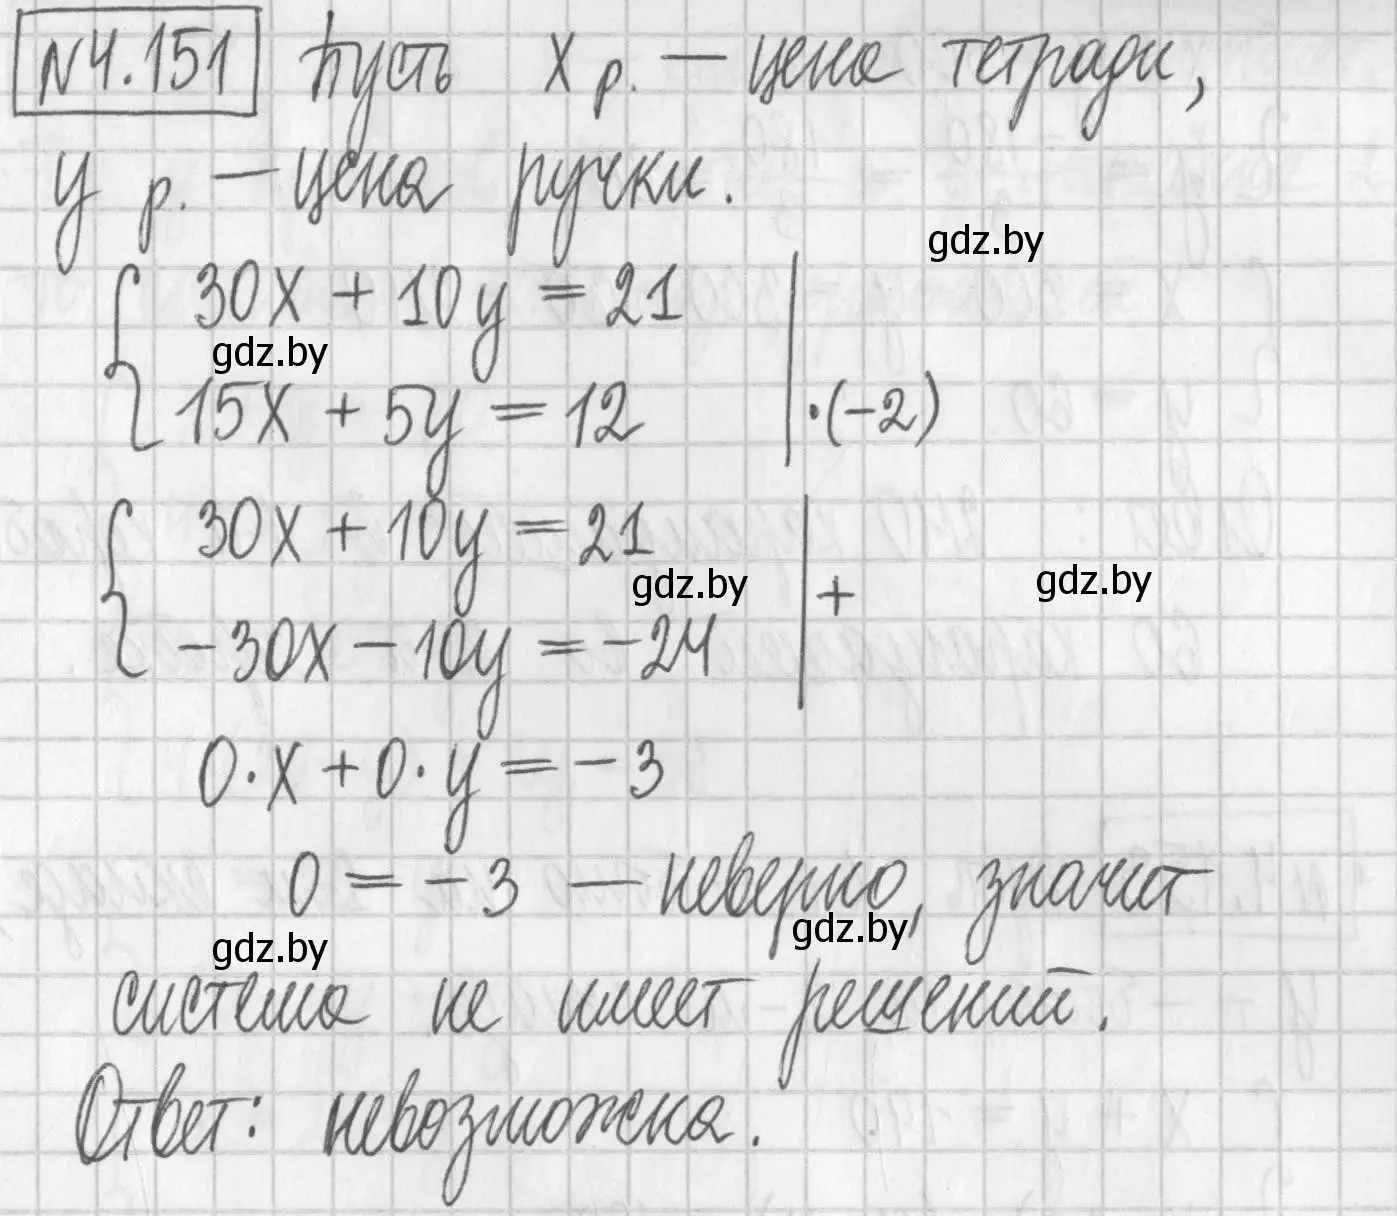 №4.151 Пусть x р. — цена тетради,
y р. — цена ручки.
gdz.by
30x + 10y = 21
gdz.by
15x + 5y = 12 | ·(-2)
30x + 10y = 21
gdz.by
gdz.by
+
-30x - 10y = -24
0·x + 0·y = -3
0 = -3 — неверно, значит
gdz.by
gdz.by
система не имеет решений.
Ответ: невозможна.